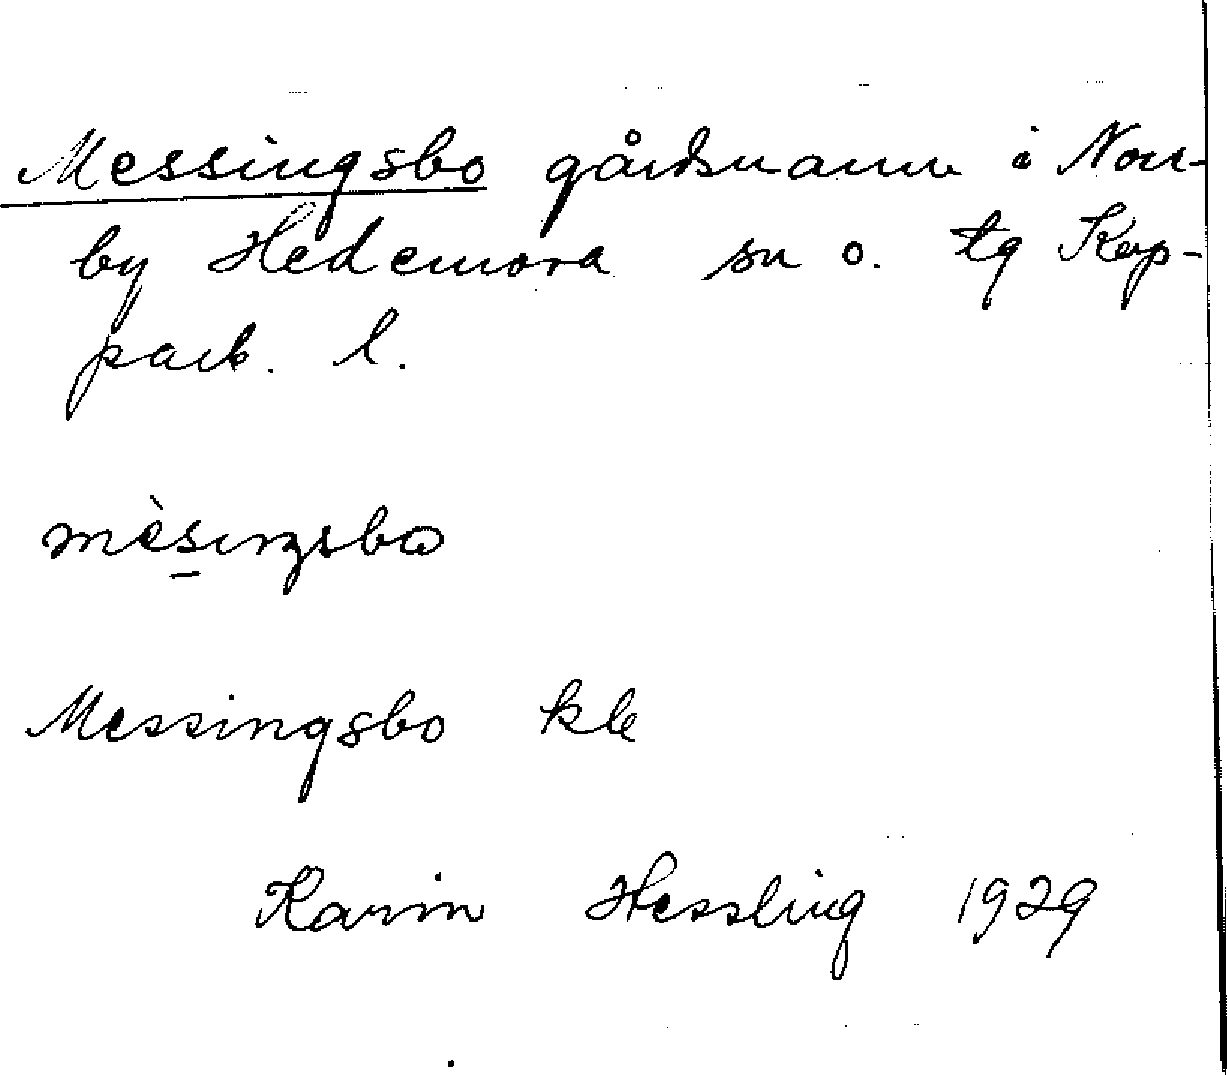 Messingsbo gårdsnamn i Norr-
by Hedemora sn o. tg Kop-
parb. l.
mèsiŋsbω
Messingsbo kb
Karin Hessling 1929